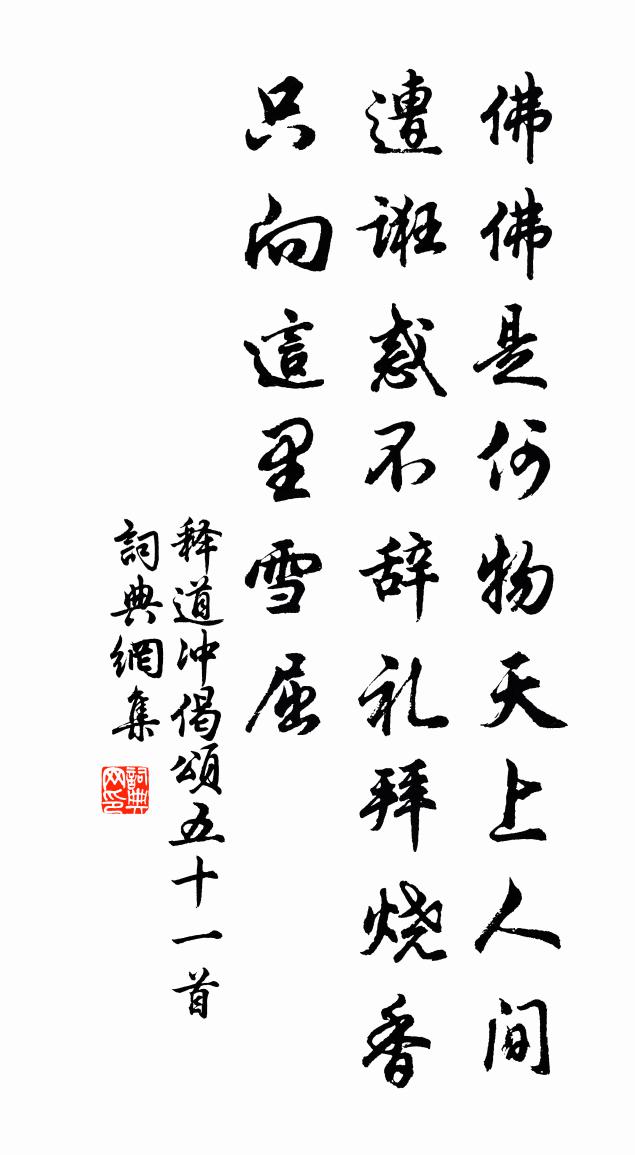 佛佛是何物天上人间
遭诳惑不辞礼拜烧香
只向這里雪屈
释道冲偈頌五十一首
詞典網集
詞典网印